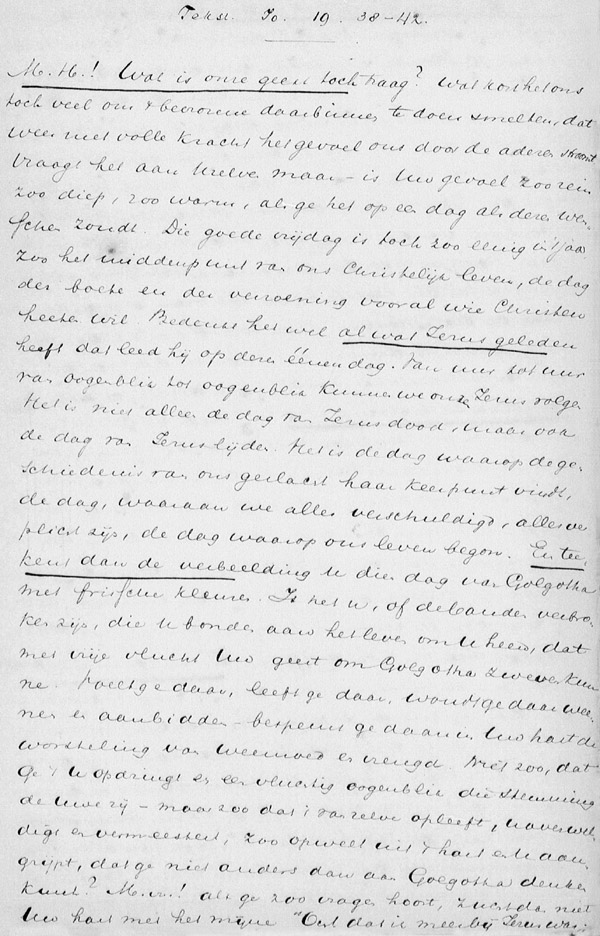 Tekst. Jo. 19. 38-42.
M. H.! Wat is onze geest toch traag? Wat kost het ons
toch veel om 't bevrorene daarbinnen te doen smelten, dat
weer met volle kracht het gevoel ons door de aderen stroomt
Vraagt het aan Uzelven maar - is Uw gevoel zoo rein
zoo diep, zoo warm, als ge het op een dag als dezen wen-
schen zoudt. Die goede vrijdag is toch zoo eenig in 't jaar
zoo het middenpunt van ons Christelijk leven, de dag
der boete en der verzoening voor al wie Christen
heeten wil. Bedenkt het wel al wat Jezus geleden
heeft dat leed hij op dezen éénen dag. Van uur tot uur
van oogenblik tot oogenblik kunnen we onzen Jezus volgen
Het is niet alleen de dag van Jezus dood, maar ook
de dag van Jezus lijden. Het is de dag waarop de ge-
schiedenis van ons geslacht haar keerpunt vindt,
de dag, waaraan we alles verschuldigd, alles ver
plicht zijn, de dag waarop ons leven begon. En tee,
kent dan de verbeelding U dien dag van Golgotha
met frissche kleuren. Is het U, of de banden verbro-
ken zijn, die U bonden aan het leven om U heen, dat
met vrije vlucht Uw geest om Golgotha zweven kun
ne. Voelt ge daar, leeft ge daar, wordt ge daar wee-
nen en aanbidden - bespeurt ge daarin Uw hart de
worsteling van weemoed en vreugd. Niet zoo, dat
ge 't U opdringt en een vluchtig oogenblik die stemming
de Uwe zij - maar zoo dat 't van zelve opleeft, U overwel-
digt en vermeestert, zoo opwelt uit 't hart en U aan-
grijpt, dat ge niet anders dan aan Golgotha denken
kunt? M. H.! als ge zoo vragen hoort, zucht dan niet
Uw hart met het mijne "Och dat ik meer bij Jezus was;